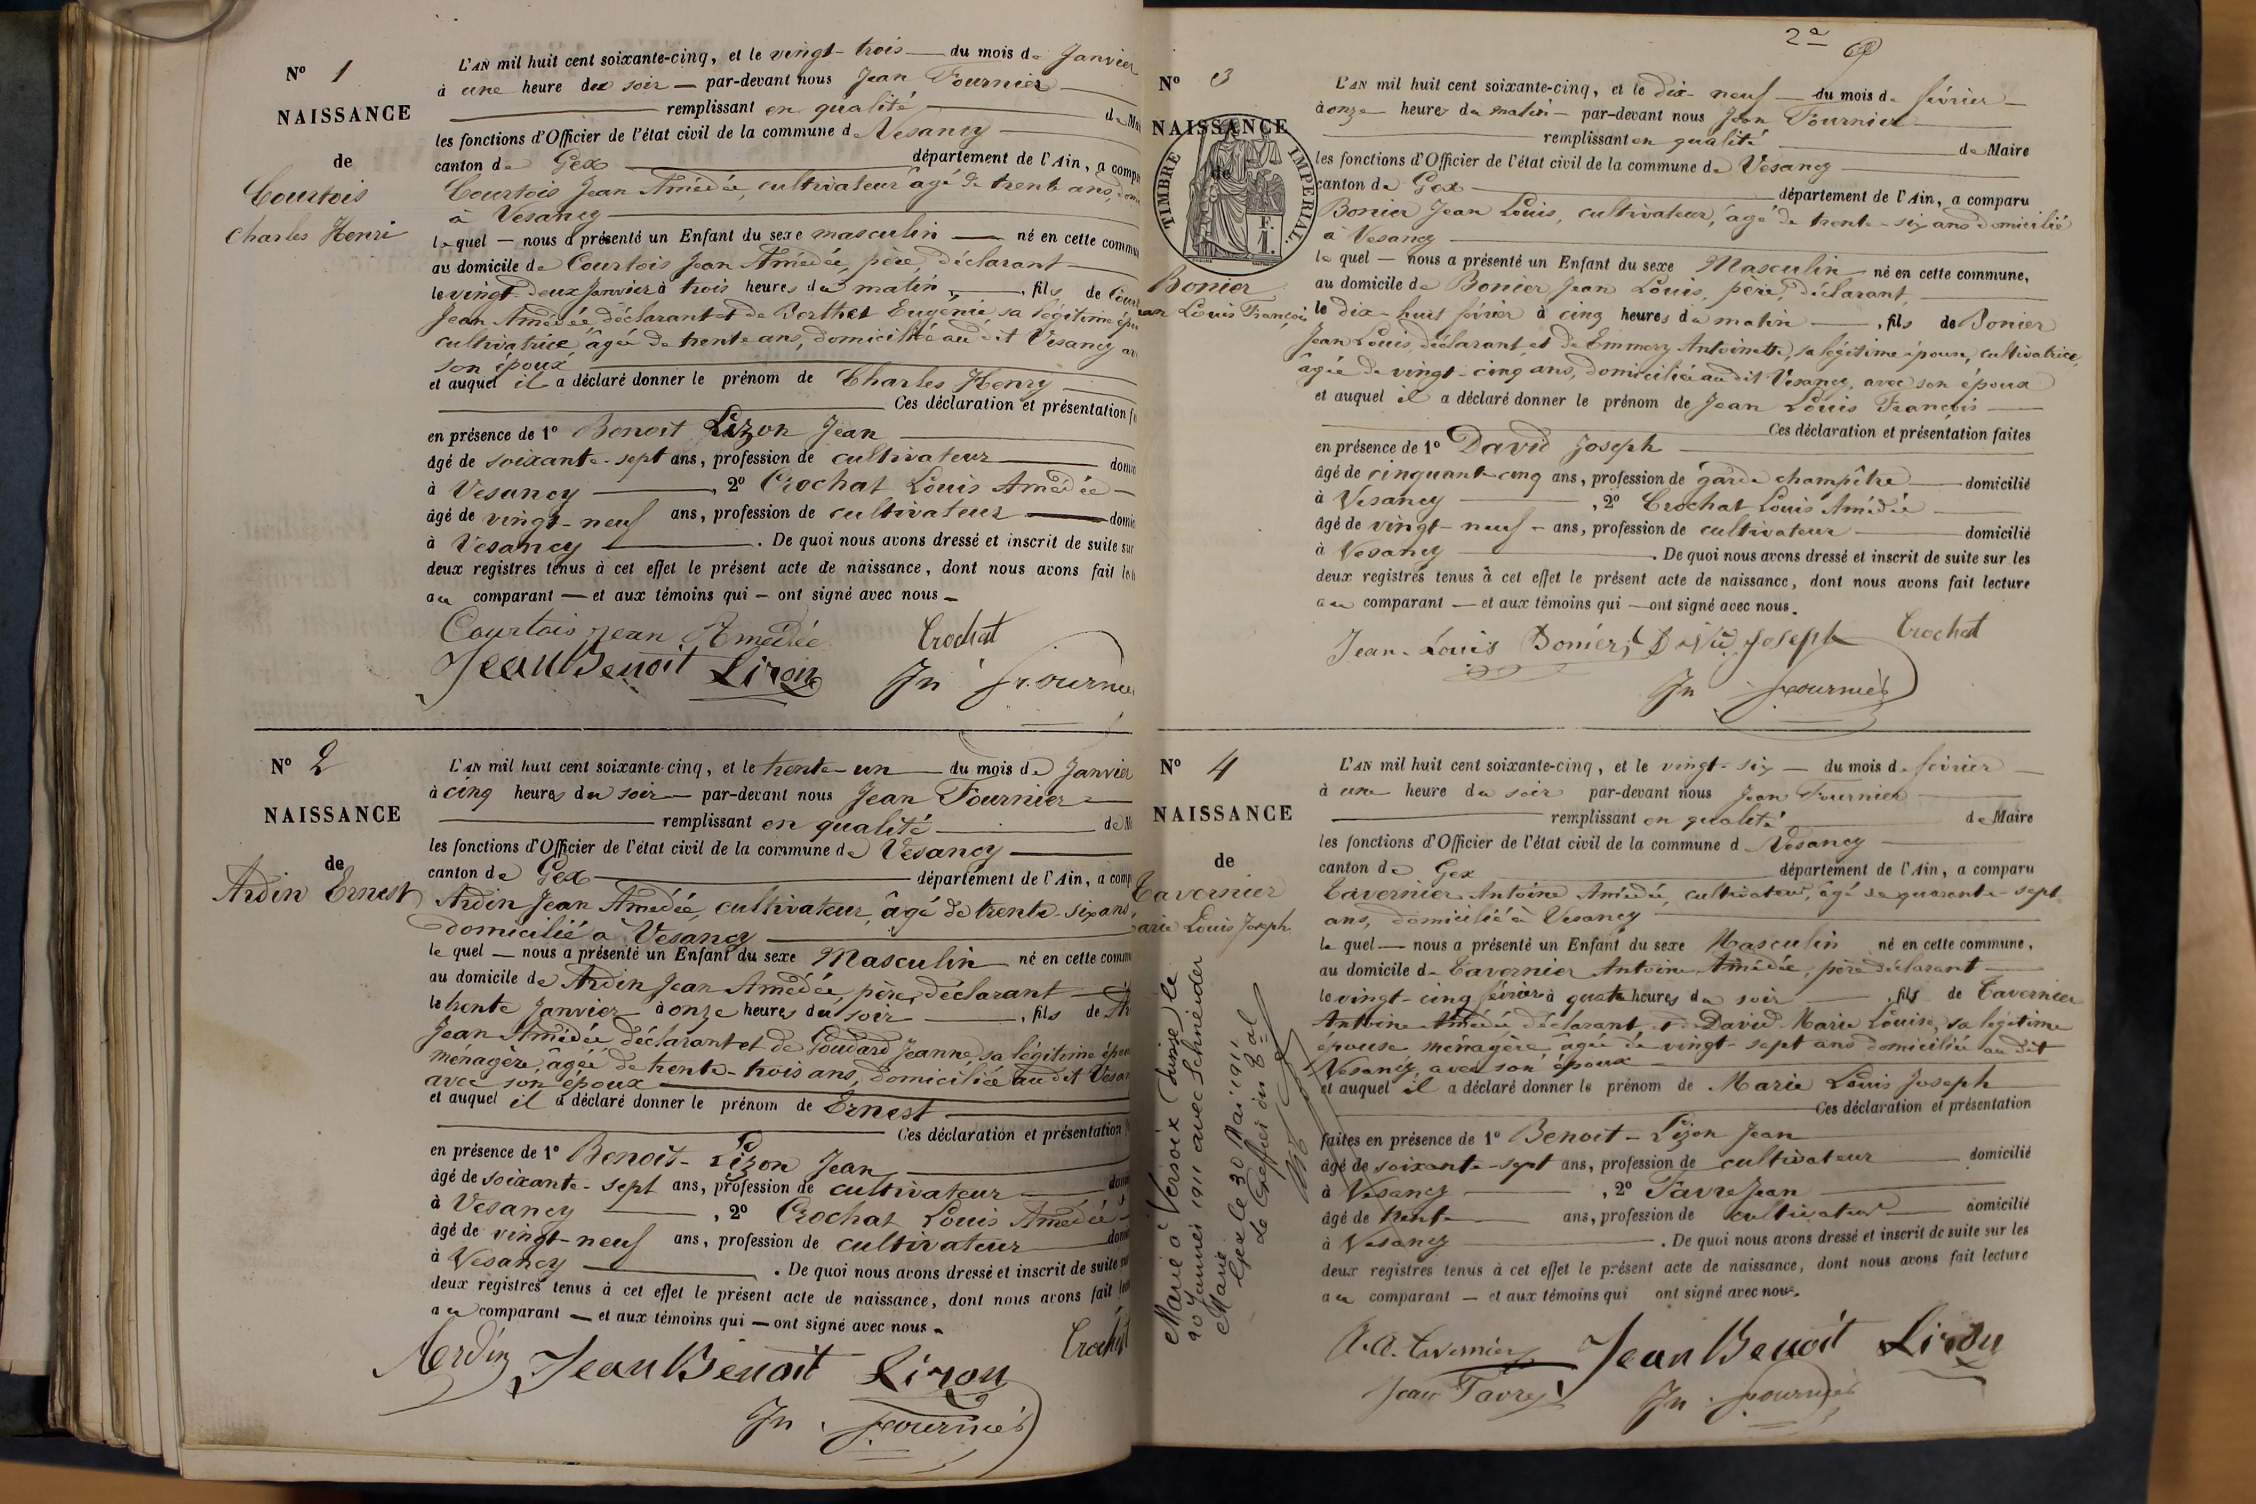 Nº 1
NAISSANCE
de
Courtois
Charles Henri
L'AN mil huit cent soixante-cinq, et le vingt-trois du mois de Janvier
à une heure du soir — par-devant nous Jean Fournier
remplissant en qualité de
les fonctions d'Officier de l'état civil de la commune de Vesancy
canton de Gex département de l'Ain, a
Courtois Jean Amédée, cultivateur âgé de trente ans,
à Vesancy
lequel — nous a présenté un Enfant du sexe masculin — né en cette
au domicile de Courtois Jean Amédée, père, déclarant
le vingt-deux Janvier à trois heures du matin, fils de
Jean Amédée déclarant et de Berthet Eugénie, sa légitime
cultivatrice âgée de trente ans, domiciliée au dit Vesancy
son époux
et auquel il a déclaré donner le prénom de Charles Henry
Ces déclaration et présentation
en présence de 1º Benoit Lizon Jean
âgé de soixante-sept ans, profession de cultivateur
à Vesancy, 2º Crochat Louis Amédée
âgé de vingt-neuf ans, profession de cultivateur
à Vesancy. De quoi nous avons dressé et inscrit de suite sur
deux registres tenus à cet effet le présent acte de naissance, dont nous avons fait
au comparant — et aux témoins qui — ont signé avec nous
Courtois Jean Amédée Crochat
Jean Benoit Lizon Jn Fournier
Nº 2
NAISSANCE
de
Ardin Ernest
L'AN mil huit cent soixante-cinq, et le trente-un du mois de Janvier
à cinq heures du soir — par-devant nous Jean Fournier
remplissant en qualité de
les fonctions d'Officier de l'état civil de la commune de Vesancy
canton de Gex département de l'Ain, a
Ardin Jean Amédée, cultivateur, âgé de trente-six ans,
domicilié à Vesancy
lequel — nous a présenté un Enfant du sexe Masculin né en cette
au domicile de Ardin Jean Amédée, père, déclarant
le trente Janvier à onze heures du soir, fils de
Jean Amédée déclarant et de Goudard Jeanne, sa légitime
ménagère, âgée de trente-trois ans, domiciliée au dit
avec son époux
et auquel il a déclaré donner le prénom de Ernest
Ces déclaration et présentation
en présence de 1º Benoit-Lizon Jean
âgé de soixante-sept ans, profession de cultivateur
à Vesancy, 2º Crochat Louis Amédée
âgé de vingt-neuf ans, profession de cultivateur
à Vesancy. De quoi nous avons dressé et inscrit de suite
deux registres tenus à cet effet le présent acte de naissance, dont nous avons fait
au comparant — et aux témoins qui — ont signé avec nous
Ardin Jean Benoit Lizon Crochat
Jn Fournier
2e
Nº 3
NAISSANCE
de
TIMBRE IMPERIAL.
F.
1.
Bonier
Louis François
L'AN mil huit cent soixante-cinq, et le dix-neuf du mois de février
à onze heures du matin — par-devant nous Jean Fournier
remplissant en qualité de Maire
les fonctions d'Officier de l'état civil de la commune de Vesancy
canton de Gex département de l'Ain, a comparu
Bonier Jean Louis, cultivateur, âgé de trente-six ans domicilié
à Vesancy
lequel — nous a présenté un Enfant du sexe Masculin né en cette commune,
au domicile de Bonier Jean Louis, père, déclarant
le dix-huit février à cinq heures du matin, fils de Bonier
Jean Louis, déclarant et de Emmery Antoinette, sa légitime épouse, cultivatrice,
âgée de vingt-cinq ans, domiciliée au dit Vesancy, avec son époux
et auquel il a déclaré donner le prénom de Jean Louis François
Ces déclaration et présentation faites
en présence de 1º David Joseph
âgé de cinquante-cinq ans, profession de garde champêtre domicilié
à Vesancy, 2º Crochat Louis Amédée
âgé de vingt-neuf — ans, profession de cultivateur domicilié
à Vesancy. De quoi nous avons dressé et inscrit de suite sur les
deux registres tenus à cet effet le présent acte de naissance, dont nous avons fait lecture
au comparant — et aux témoins qui — ont signé avec nous.
Jean-Louis Bonier, David Joseph Crochat
Jn Fournier
Nº 4
NAISSANCE
de
Tavernier
Louis Joseph
L'AN mil huit cent soixante-cinq, et le vingt-six — du mois de février
à une heure du soir par-devant nous Jean Fournier
remplissant en qualité de Maire
les fonctions d'Officier de l'état civil de la commune d Vesancy
canton de Gex département de l'Ain, a comparu
Tavernier Antoine Amédée, cultivateur, âgé de quarante-sept
ans, domicilié à Vesancy
lequel — nous a présenté un Enfant du sexe Masculin né en cette commune,
au domicile de Tavernier Antoine Amédée, père déclarant
le vingt-cinq février à quatre heures du soir, fils de Tavernier
Antoine Amédée déclarant et de David Marie Louise, sa légitime
épouse ménagère âgée de vingt-sept ans domiciliée au dit
Vesancy, avec son époux
et auquel il a déclaré donner le prénom de Marie Louis Joseph
Ces déclaration et présentation
faites en présence de 1º Benoit-Lizon Jean
âgé de soixante-sept ans, profession de cultivateur domicilié
à Vesancy, 2º Favre Jean
âgé de trente ans, profession de cultivateur domicilié
à Vesancy. De quoi nous avons dressé et inscrit de suite sur les
deux registres tenus à cet effet le présent acte de naissance, dont nous avons fait lecture
au comparant — et aux témoins qui ont signé avec nous.
A. A. Tavernier Jean Benoit Lizon
Jean Favre Jn Fournier
Marié à Versoix (Suisse) le
20 Janvier 1911 avec Schneider
Marie
Gex le 30 Mai 1911
Le Greffier en Bal